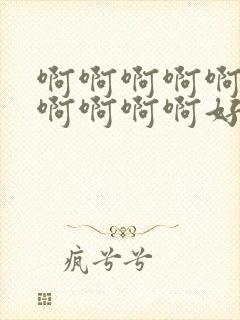 啊啊啊啊啊
啊啊啊啊好
疯兮兮